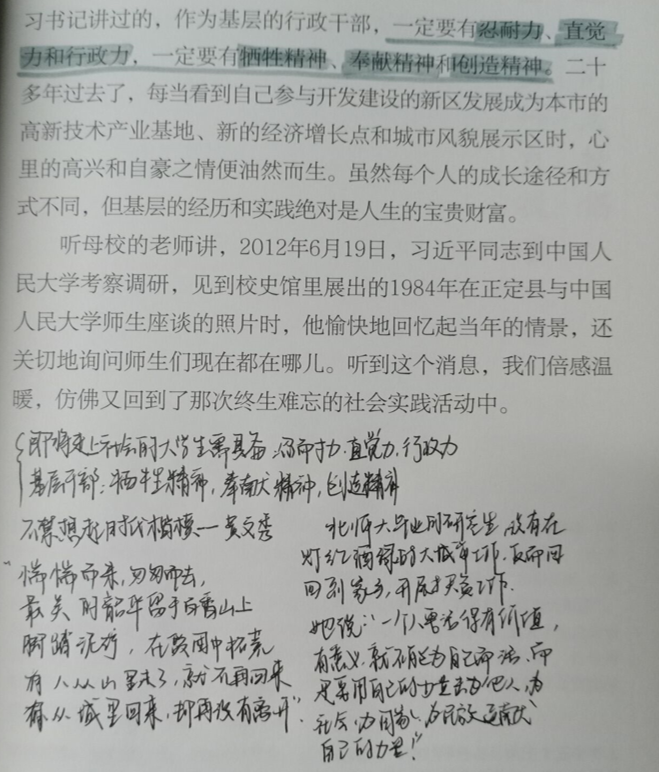 习书记讲过的，作为基层的行政干部，一定要有忍耐力、直觉
力和行政力，一定要有牺牲精神、奉献精神和创造精神。二十
多年过去了，每当看到自己参与开发建设的新区发展成为本市的
高新技术产业基地、新的经济增长点和城市风貌展示区时，心
里的高兴和自豪之情便油然而生。虽然每个人的成长途径和方
式不同，但基层的经历和实践绝对是人生的宝贵财富。
听母校的老师讲，2012年6月19日，习近平同志到中国人
民大学考察调研，见到校史馆里展出的1984年在正定县与中国
人民大学师生座谈的照片时，他愉快地回忆起当年的情景，还
关切地询问师生们现在都在哪儿。听到这个消息，我们倍感温
暖，仿佛又回到了那次终生难忘的社会实践活动中。
即将走上社会的大学生需具备：忍耐力、直觉力、行政力
基层干部：牺牲精神，奉献精神，创造精神
不禁想起时代楷模—黄文秀
"惴惴而来，匆匆而去，
最美的韶华留于百香山上
脚踏泥泞，在
有人从山里走了，就不再回来
有从城里回来，却再没有离开"。
北师大毕业的研究生，没有在
灯红酒绿的大城市工作，反而
回到家乡，开展扶贫工作。
她说："一个人要活得有价值，
有意义，就不能光为自己而活，而
是要用自己的力量去为他人，为
社会，为国家，为民族，贡献
自己的力量！"